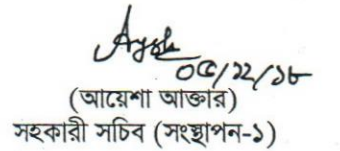 Aysha
০৫/১২/১৮
(আয়েশা আক্তার)
সহকারী সচিব (সংস্থাপন-১)